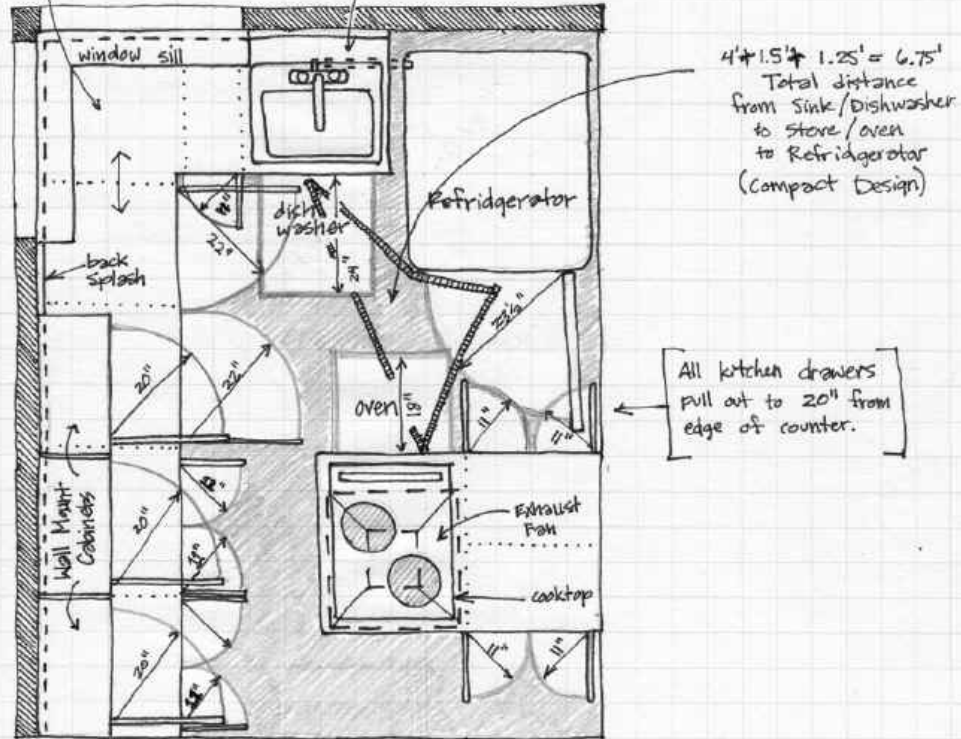 window sill
4'+1.5'+ 1.25' = 6.75'
Total distance
from Sink/Dishwasher
to stove/oven
to Refridgerator
(Compact Design)
Refridgerator
dish
washer
22"
24"
back
splash
23½"
20"
22"
oven
18"
11"
11"
All kitchen drawers
pull out to 20" from
edge of counter.
Wall Mount
Cabinets
20"
Exhaust
Fan
cooktop
20"
11"
11"